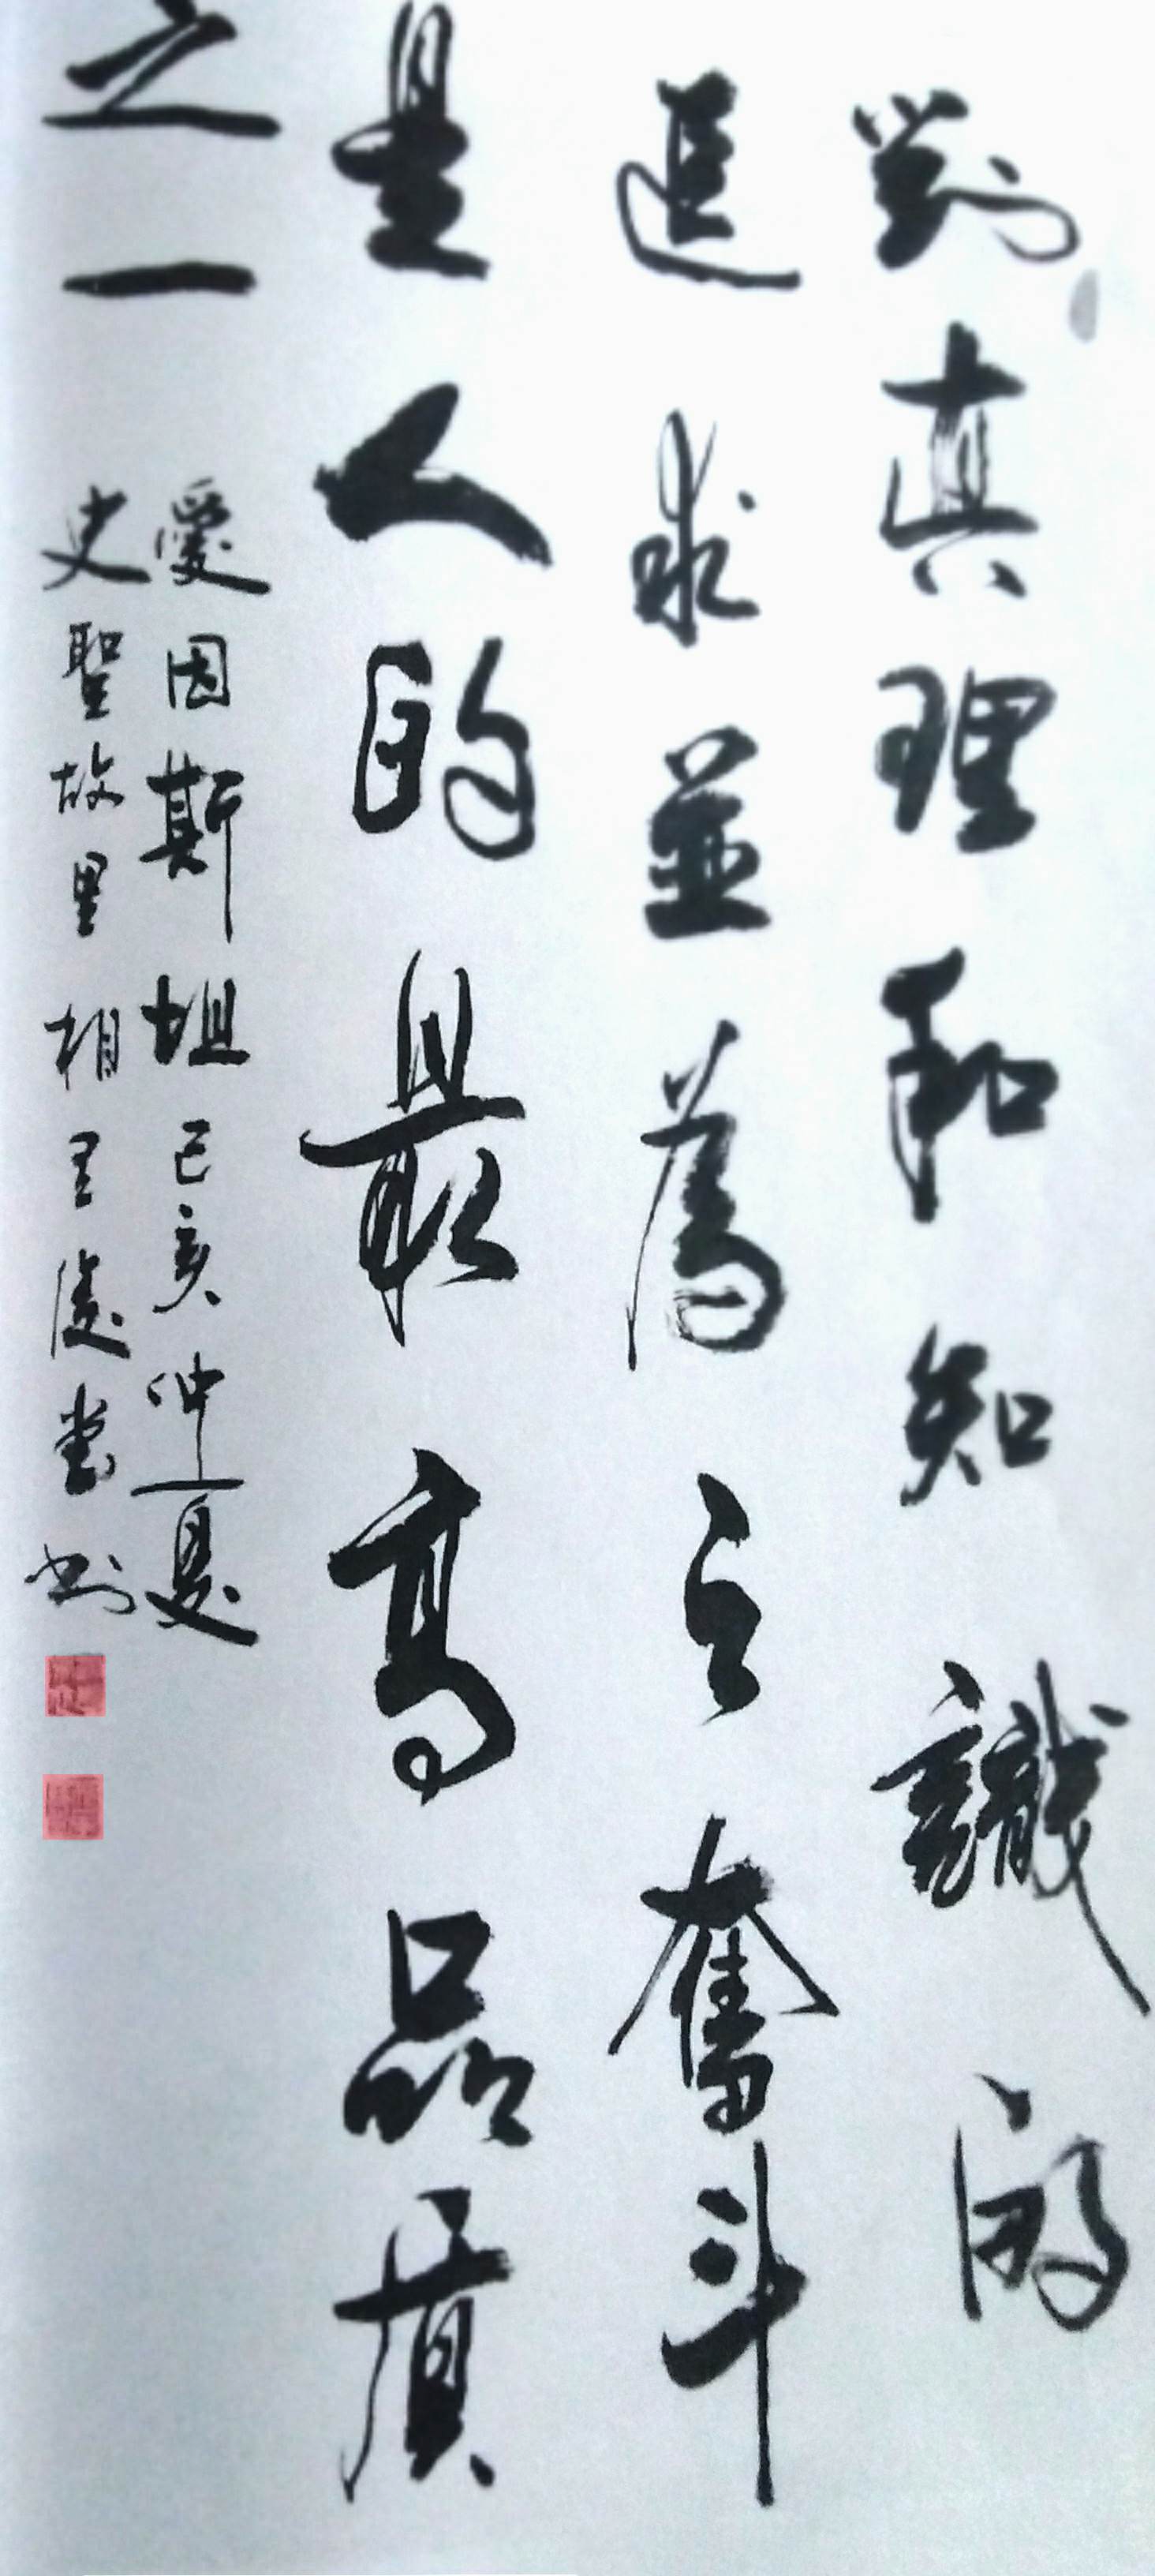 對真理和知識的
追求並為之奮斗
是人的最高品質
之一
愛因斯坦己亥仲夏
史聖故里相里慶堂书